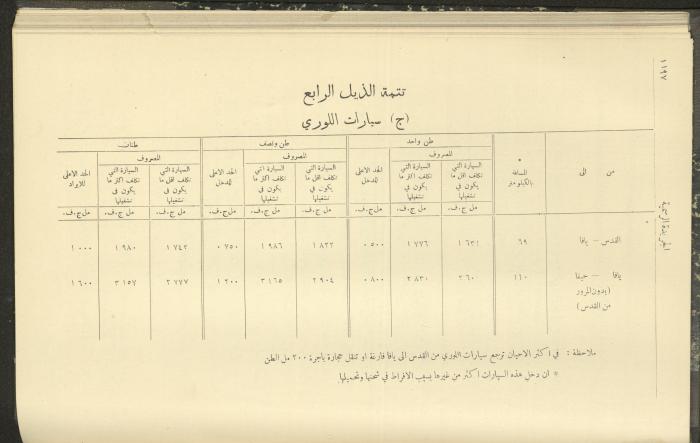 ١١٩٧
الجريدة الرسمية
تتمة الذيل الرابع
(ج) سيارات اللوري
من الى
المسافة بالكيلومتر
طن واحد
المصروف
السيارة التي تكلف اقل ما يكون في تشغيلها
السيارة التي تكلف اكثر ما يكون في تشغيلها
الحد الاعلى للدخل
طن ونصف
المصروف
السيارة التي تكلف اقل ما يكون في تشغيلها
السيارة التي تكلف اكثر ما يكون في تشغيلها
الحد الاعلى للدخل
طنان
المصروف
السيارة التي تكلف اقل ما يكون في تشغيلها
السيارة التي تكلف اكثر ما يكون في تشغيلها
الحد الاعلى للايراد
مل ج.ف. مل ج.ف. مل ج.ف. مل ج.ف. مل ج.ف. مل ج.ف. مل ج.ف. مل ج.ف. مل ج.ف.
القدس – يافا ٦٩ ١ ٦٣١ ١ ٧٧٦ ٠ ٥٠٠ ١ ٨٢٢ ١ ٩٨٦ ٠ ٧٥٠ ١ ٧٤٢ ١ ٩٨٠ ١ ٠٠٠
يافا – حيفا ١١٠ ٢ ٦٠ ٢ ٨٣٠ ٠ ٨٠٠ ٢ ٩٠٤ ٣ ١٦٥ ١ ٢٠٠ ٢ ٧٧٧ ٣ ١٥٧ ١ ٦٠٠
(بدون المرور
من القدس)
ملاحظة : في اكثر الاحيان ترجع سيارات اللوري من القدس الى يافا فارغة او تنقل حجارة باجرة ٢٠٠ مل الطن
* ان دخل هذه السيارات اكثر من غيرها بسبب الافراط في شحنها وتحميلها.